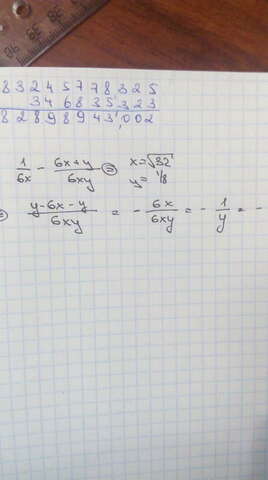 8 3 2 4 5 7 7 8 3 2 5
3 4 6 8 3 5 3 2 3
8 2 8 9 8 9 4 3 0 0 2
1/6x - (6x+y)/6xy = x=√32
y= 1/8
= (y-6x-y)/6xy = - 6x/6xy = - 1/y = -